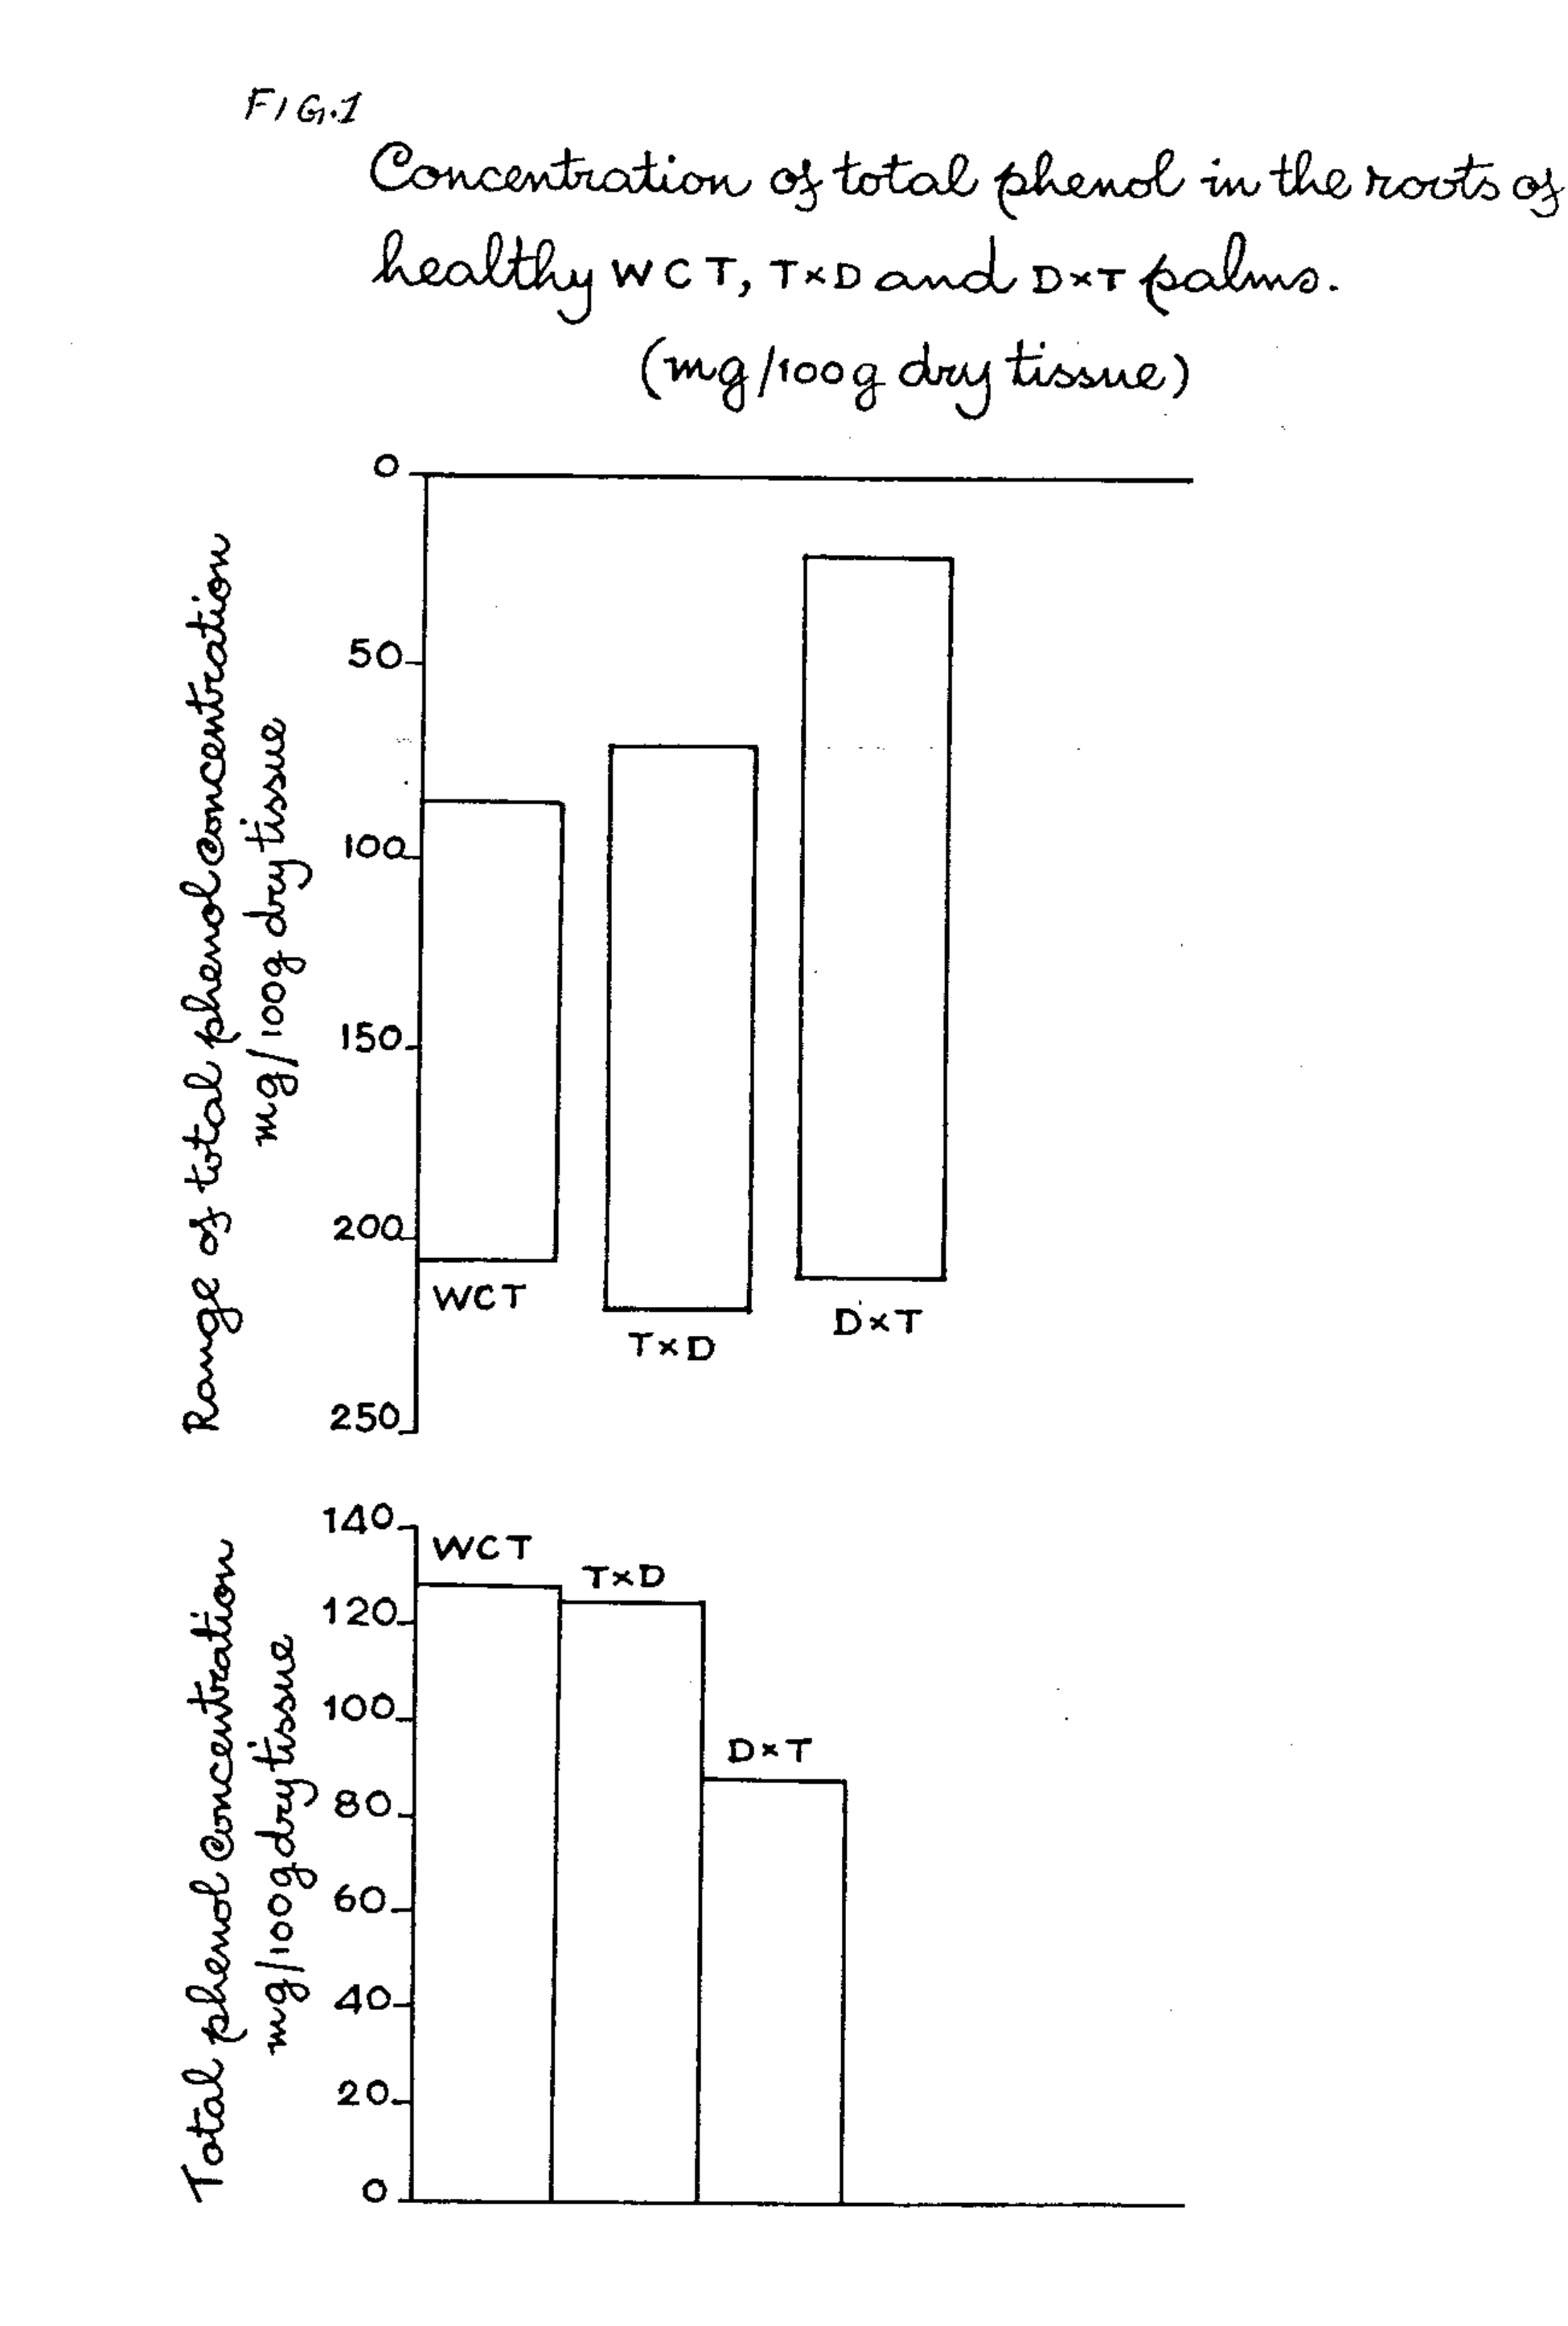 FIG.1
Concentration of total phenol in the roots of
healthy WCT, T×D and D×T palms.
(mg/100g dry tissue)
Range of total phenol concentration
mg/100g dry tissue
0
50
100
150
200
250
WCT
T×D
D×T
Total phenol concentration
mg/100g dry tissue
140
120
100
80
60
40
20
0
WCT
T×D
D×T